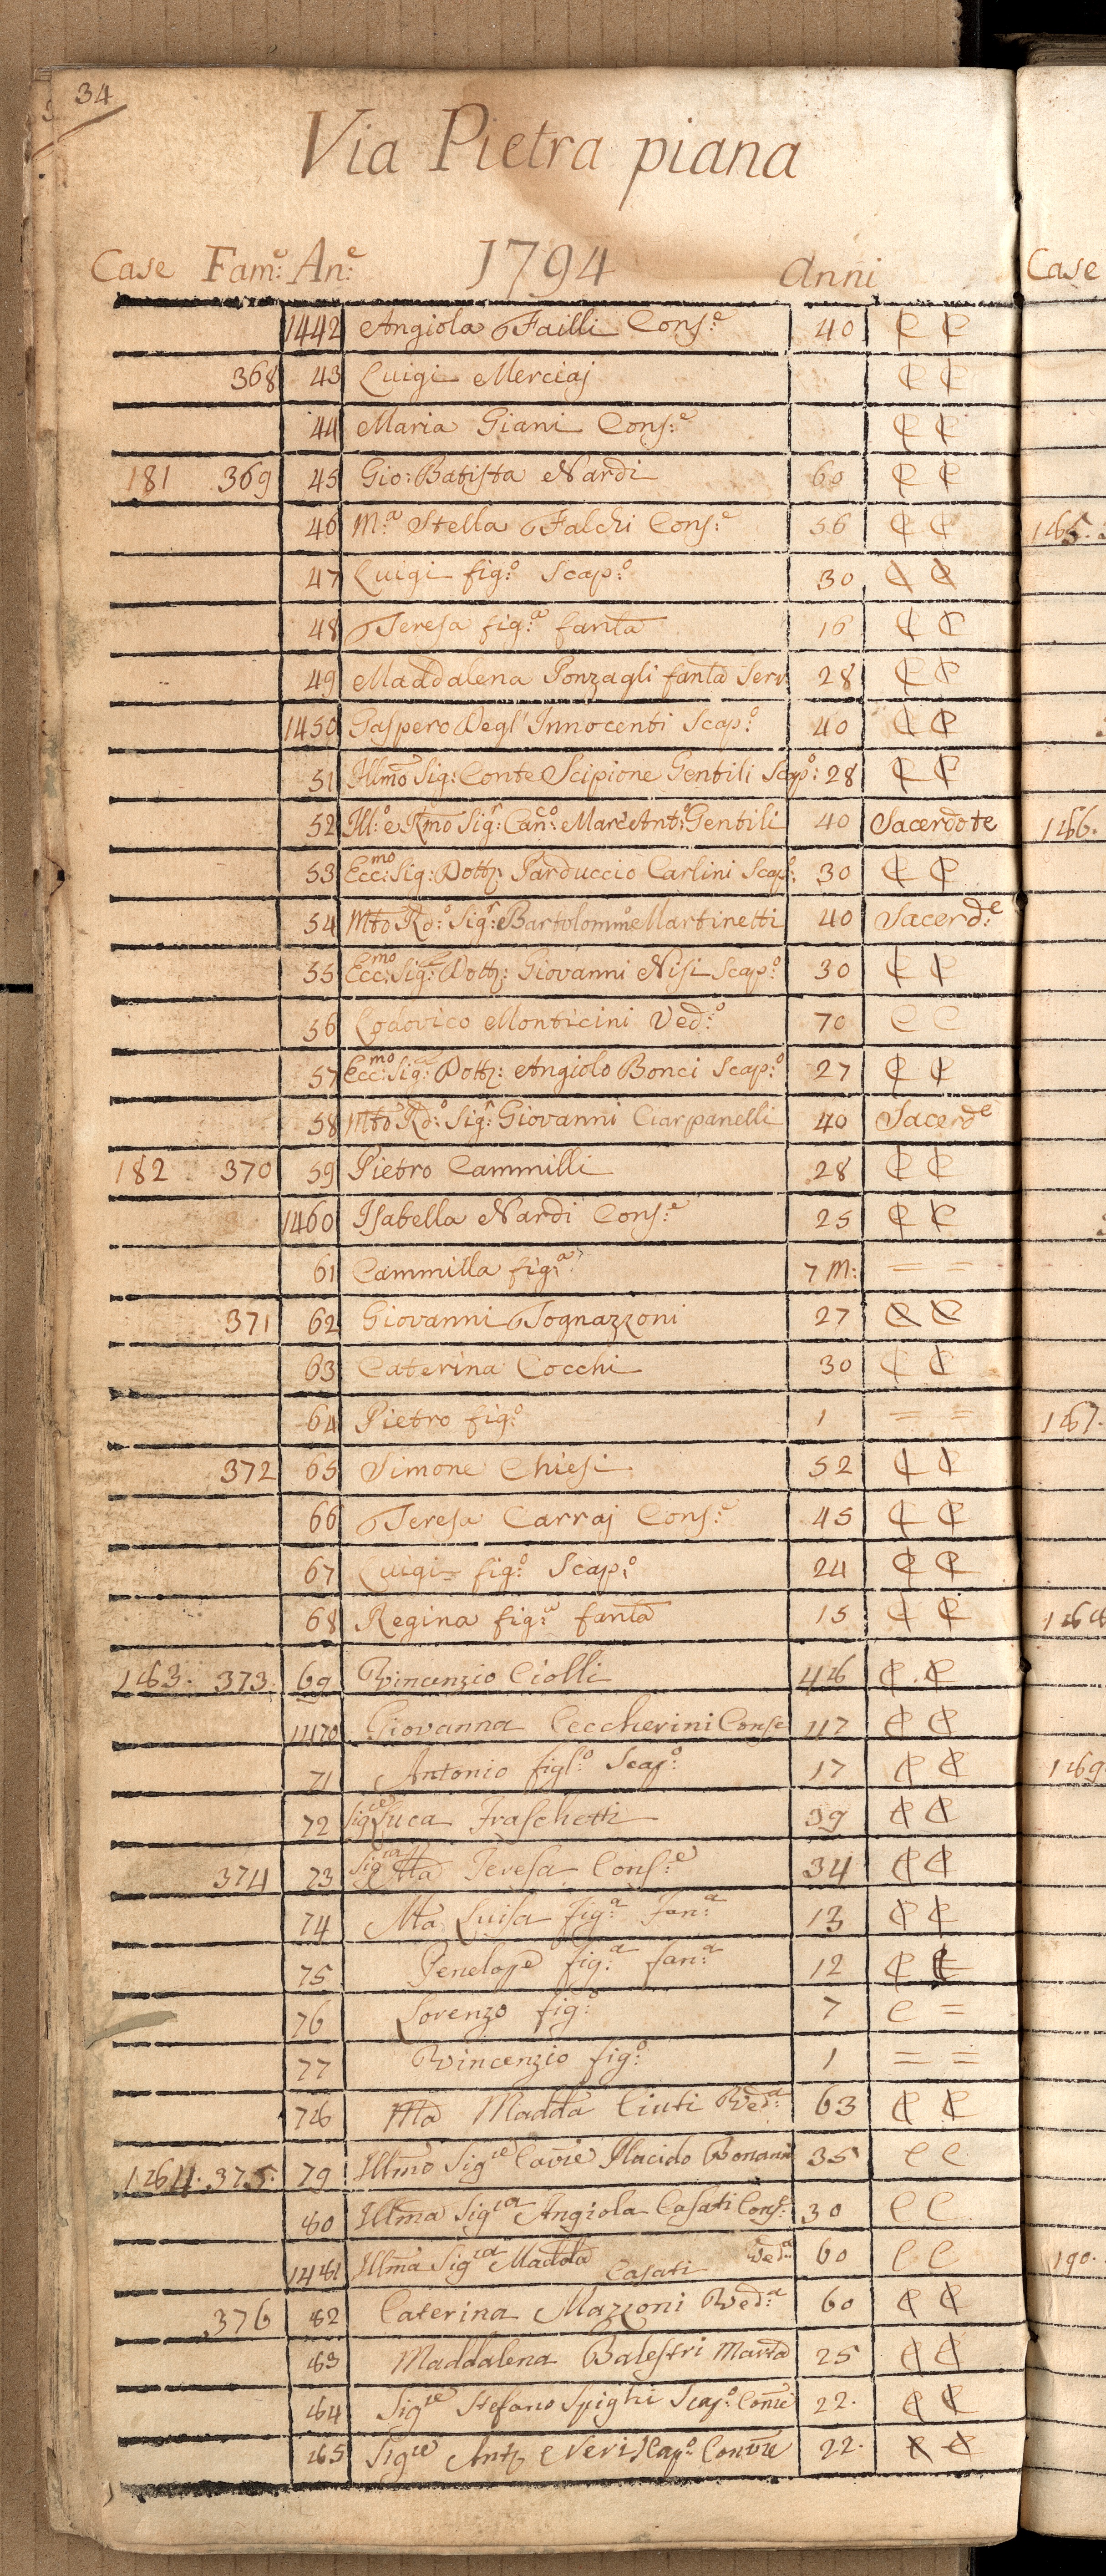 34
Via Pietra piana
Case Fam:e An:e 1794 Anni
Case
1442 Angiola Failli Cons:e 40 C C
368 43 Luigi Merciaj C C
44 Maria Giani Cons:e C C
181 369 45 Gio: Batista Nardi 60 C C
46 M:a Stella Falchi Cons:e 56 C C
185.
47 Luigi fig:o Scap:o 30 C C
48 Teresa fig:a fanta 16 C C
49 Maddalena Ponzagli fanta Serv 28 C C
1450 Gaspero Degl'Innocenti Scap:o 40 C C
51 Illmo Sig: Conte Scipione Gentili Scap:o 28 C C
52 Ill:o e Rmo Sig:r Can:co Marc'Ant:o Gentili 40 Sacerdote
186.
53 Ecc:mo Sig: Dott: Parduccio Carlini Scap:o 30 C C
54 Mto Rd:o Sig:r Bartolommo Martinetti 40 Sacerd:e
55 Ecc:mo Sig:r Dott: Giovanni Nisi Scap:o 30 C C
56 Lodovico Monticini Ved:o 70 C C
57 Ecc:mo Sig:r Dott: Angiolo Bonci Scap:o 27 C C
58 Mto Rd:o Sig:r Giovanni Ciarpanelli 40 Sacerde
182 370 59 Pietro Cammilli 28 C C
1460 Isabella Nardi Cons:e 25 C C
61 Cammilla fig:a 7 M: = =
371 62 Giovanni Tognazzoni 27 C C
63 Caterina Cocchi 30 C C
64 Pietro fig:o 1 = =
187.
372 65 Simone Chiesi 52 C C
66 Teresa Carraj Cons:e 45 C C
67 Luigi fig:o Scap:o 24 C C
68 Regina fig:a fanta 15 C C
188
183. 373. 69 Vincenzio Ciolli 48 C . C
1470 Giovanna Ceccherini Conse 47 C C
71 Antonio figl:o Scap:o 17 C C
189
72 Sigre Luca Fraschetti 39 C C
374 73 Sigra Mta Teresa Cons:e 34 C C
74 Mta Luisa fig:a Fan:a 13 C C
75 Penelope fig:a fan:a 12 C C
76 Lorenzo fig:o 7 C =
77 Vincenzio fig:o 1 = =
78 Ma Madda Ciuti Ved:a 63 C C
184. 375. 79 Illmo Sigre Cavre Placido Bonanni 35 C C
80 Illma Sigra Angiola Casati Cons:e 30 C C
1481 Illma Sigra Madda Casati Ved:a 60 C C
190.
376 82 Caterina Mazzoni Ved:a 60 C C
83 Maddalena Balestri Marta 25 C C
84 Sigre Stefano Spighi Scap:o Conre 22. C C
85 Sigre Anto Neri Scap:o Convre 22. C C